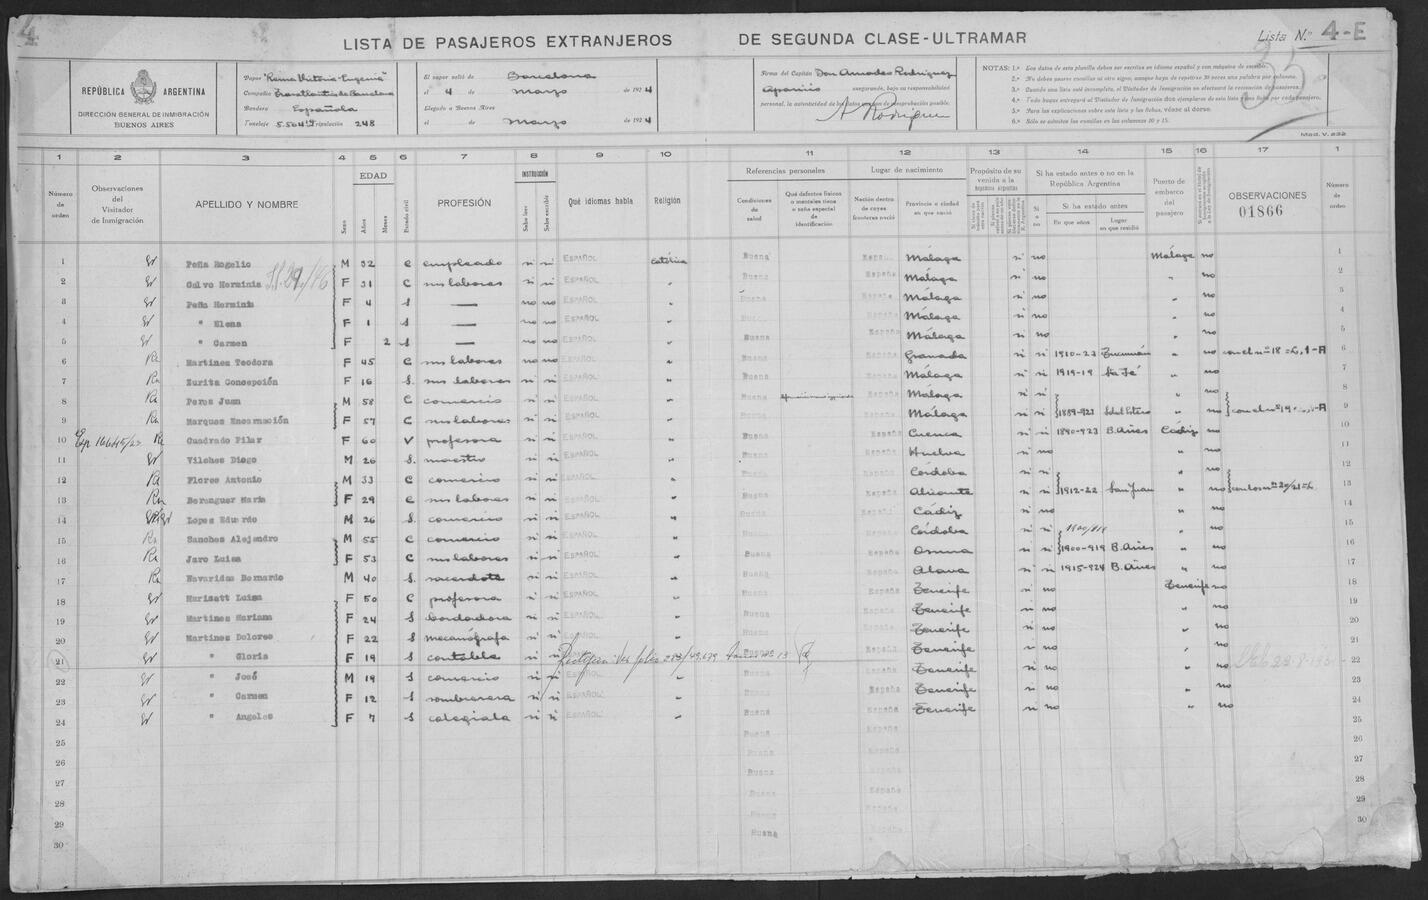 4
LISTA DE PASAJEROS EXTRANJEROS DE SEGUNDA CLASE-ULTRAMAR
Lista N.º 4-E
35
REPÚBLICA ARGENTINA
DIRECCIÓN GENERAL DE INMIGRACIÓN
BUENOS AIRES
Vapor "Reina Victoria-Eugenia"
Compañía Trasatlántica de Barcelona
Bandera Española
Tonelaje 5.504 Tripulación 248
El vapor salió de Barcelona
el 4 de Marzo de 1924
Llegado a Buenos Aires
el de Marzo de 1924
Firma del Capitán Don Amadeo Rodriguez
Aparicio asegurando, bajo su responsabilidad
personal, la autenticidad de los datos de comprobación posible.
A Rodriguez
NOTAS: 1.ª Los datos de esta planilla deben ser escritos en idioma español y con máquina de escribir.
2.ª No deben usarse comillas ni otro signo, aunque haya de repetirse 30 veces una palabra por columna.
3.ª Cuando una lista esté incompleta, el Visitador de Inmigración no efectuará la recepción de pasajeros.
4.ª Todo buque entregará al Visitador de Inmigración dos ejemplares de esta lista y las fichas por cada pasajero.
5.ª Para las explicaciones sobre esta lista y las fichas, véase al dorso.
6.ª Sólo se admiten las comillas en las columnas 10 y 15.
Mod. V. 232
1 2 3 4 5 6 7 8 9 10 11 12 13 14 15 16 17 1
Número de orden
Observaciones del Visitador de Inmigración
APELLIDO Y NOMBRE
Sexo
EDAD
Años
Meses
Estado civil
PROFESIÓN
INSTRUCCIÓN
Sabe leer
Sabe escribir
Qué idiomas habla
Religión
Referencias personales
Condiciones de salud
Qué defectos físicos o mentales tiene o seña especial de identificación
Lugar de nacimiento
Nación dentro de cuyas fronteras nació
Provincia o ciudad en que nació
Propósito de su venida a la República Argentina
Si ha estado antes o no en la República Argentina
Si o no
Si ha estado antes
En que años
Lugar en que residió
Puerto de embarco del pasajero
OBSERVACIONES
01866
Número de orden
1 Peña Rogelio M 32 C empleado si si ESPAÑOL Católica Buena España Málaga si no Málaga no 1
2 Calvo Herminia F 31 C sus labores si si ESPAÑOL " Buena España Málaga si no " no 2
3 Peña Herminia F 4 S — no no ESPAÑOL " Buena España Málaga si no " no 3
4 " Elena F 1 S — no no ESPAÑOL " Buena España Málaga si no " no 4
5 " Carmen F 2 S — no no ESPAÑOL " Buena España Málaga si no " no 5
6 Martinez Teodora F 45 C sus labores no no ESPAÑOL " Buena España Granada si si 1910-23 Tucumán " no con el nº 18 L. 1-A 6
7 Zurita Concepción F 16 S. sus labores si si ESPAÑOL " Buena España Málaga si si 1919-19 Sta Fé " no 7
8 Perez Juan M 58 C comercio si si ESPAÑOL " Buena España Málaga si si " no 8
9 Marques Encarnación F 57 C sus labores si si ESPAÑOL " Buena España Málaga si si 1889-923 " no con el nº 19 9
10 Exp. 16645/23 Cuadrado Pilar F 60 V profesora si si ESPAÑOL " Buena España Cuenca si si 1890-923 B. Aires Cádiz no 10
11 Vilches Diego M 26 S. maestro si si ESPAÑOL " Buena España Huelva si no " no 11
12 Flores Antonio M 33 C comercio si si ESPAÑOL " Buena España Córdoba si si " no 12
13 Berenguer Maria F 29 C sus labores si si ESPAÑOL " Buena España Alicante si si 1912-22 San Juan " no 13
14 Lopez Eduardo M 26 S. comercio si si ESPAÑOL " Buena España Cádiz si no " no 14
15 Sanchez Alejandro M 55 C comercio si si ESPAÑOL " Buena España Córdoba si si " no 15
16 Jaro Luisa F 53 C sus labores si si ESPAÑOL " Buena España Osuna si si 1900-919 B. Aires " no 16
17 Navaridas Bernardo M 40 S. sacerdote si si ESPAÑOL " Buena España Alava si si 1915-924 B. Aires " no 17
18 Marisatt Luisa F 50 C profesora si si ESPAÑOL " Buena España Tenerife si no Tenerife no 18
19 Martinez Mariana F 24 S bordadora si si ESPAÑOL " Buena España Tenerife si no " no 19
20 Martinez Dolores F 22 S mecanógrafa si si ESPAÑOL " Buena España Tenerife si no " no 20
21 " Gloria F 19 S contable si si " Buena España Tenerife si no " no 21
22 " José M 19 S comercio si si ESPAÑOL " Buena España Tenerife si no " no 22
23 " Carmen F 12 S sombrerera si si ESPAÑOL " Buena España Tenerife si no " no 23
24 " Angeles F 7 S colegiala si si ESPAÑOL " Buena España Tenerife si no " no 24
25 Buena España 25
26 Buena España 26
27 Buena España 27
28 Buena España 28
29 Buena España 29
30 Buena España 30